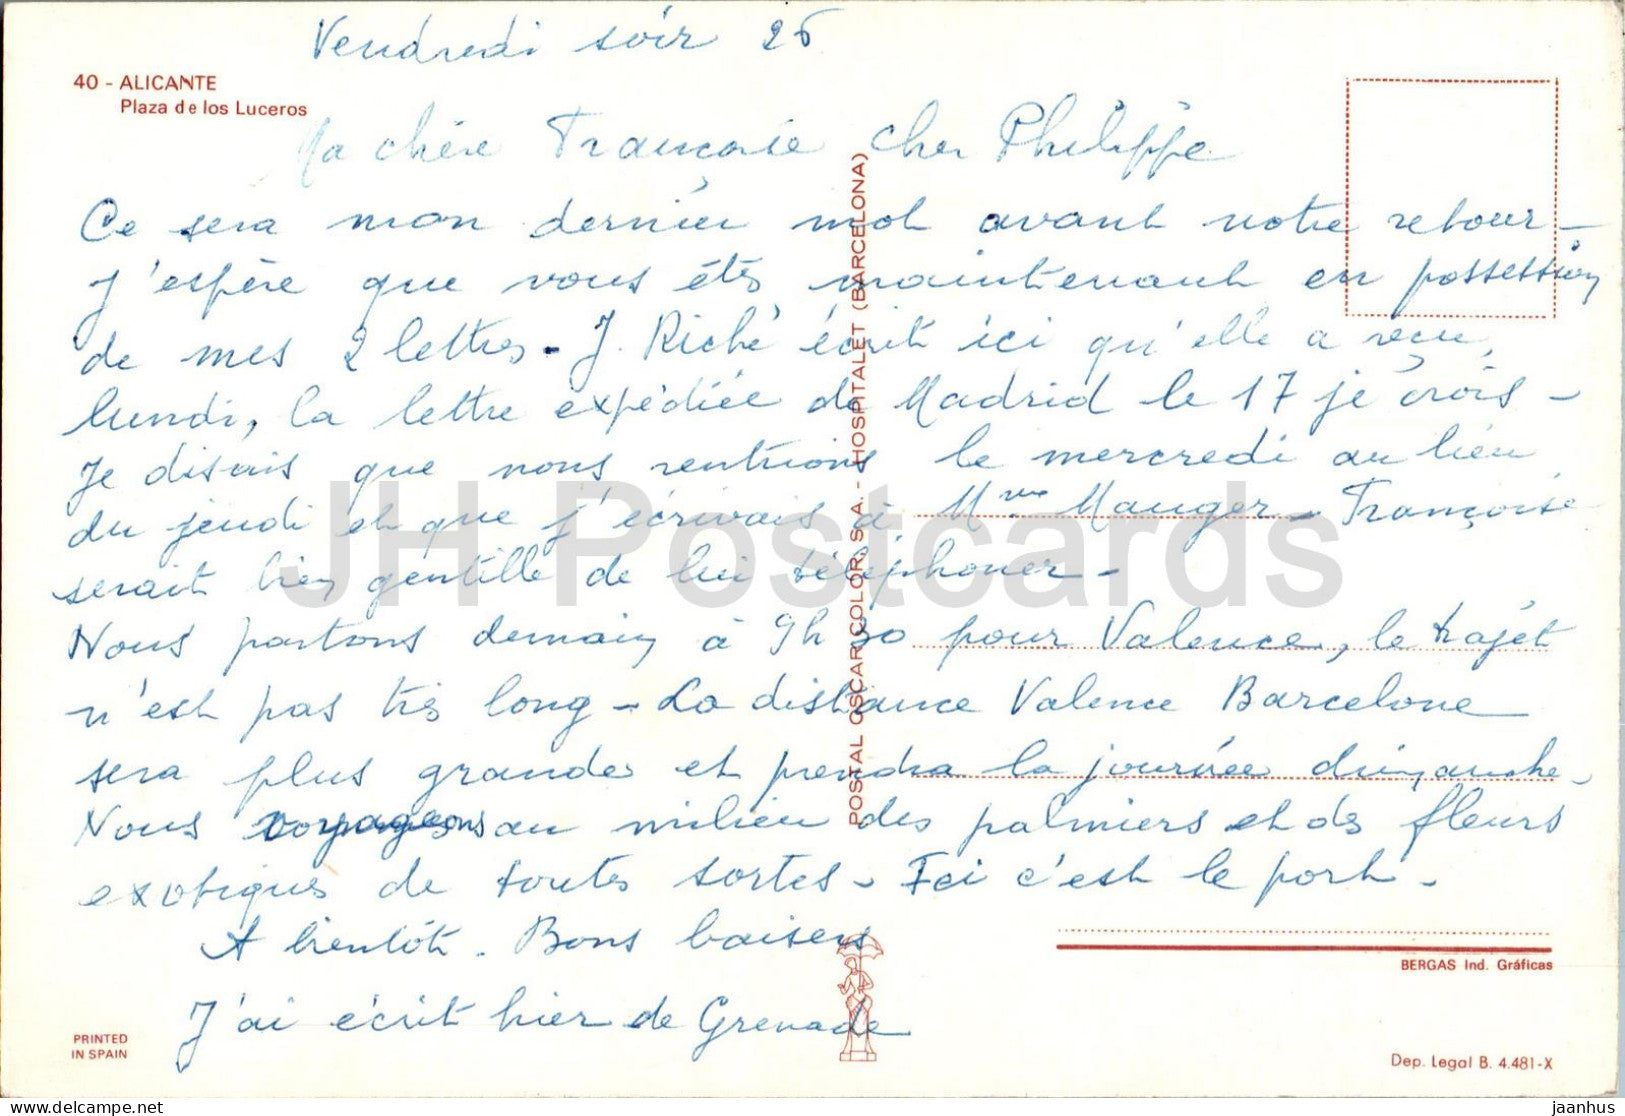 Vendredi soir 26
40 - ALICANTE
Plaza de los Luceros
Ma chère Françoise cher Philippe
Ce sera mon dernier mot avant notre retour -
J'espère que vous êtes maintenant en possession
de mes 2 lettres - J. Riché écrit ici qu'elle a reçu,
lundi, la lettre expédiée de Madrid le 17 je crois -
Je disais que nous rentrions le mercredi au lieu
du jeudi et que j'écrivais à Mme Mauger - Françoise
serait bien gentille de lui téléphoner -
Nous partons demain à 9h 30 pour Valence, le trajet
n'est pas très long - La distance Valence Barcelone
sera plus grande et prendra la journée dimanche -
Nous voyageons au milieu des palmiers et des fleurs
exotiques de toutes sortes - Ici c'est le port -
A bientôt. Bons baisers
J'ai écrit hier de Grenade
POSTAL OSCARCOLOR, S.A. - HOSPITALET (BARCELONA)
BERGAS Ind. Gráficas
PRINTED
IN SPAIN
Dep. Legal B. 4.481-X
JH Postcards
delcampe.net
jaanhus